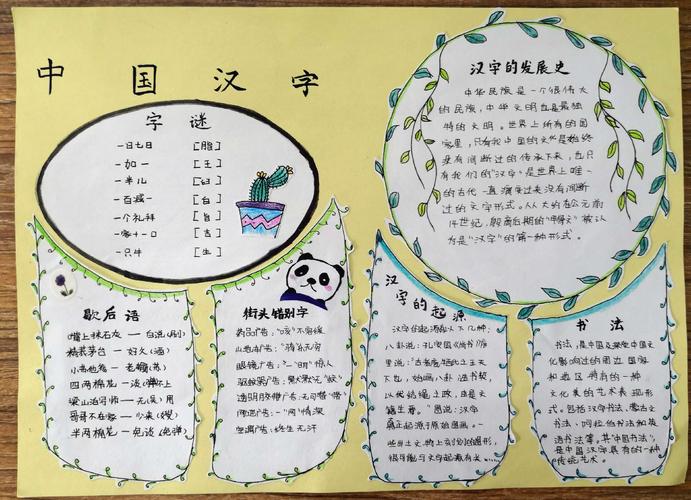 中国汉字
字谜
一日七日 [脂]
一加一 [王]
一半儿 [臼]
一百减一 [白]
一个礼拜 [旨]
一家十一口 [吉]
一只牛 [生]
汉字的发展史
中华民族是一个很伟大
的民族,中华文明也是最独
特的文明。世界上所有的国
家里,只有我中国的文化是始终
没有间断过的传承下来,也只
有我们的“汉字”是世界上唯一
的古代一直演变过来没有间断
过的文字形式。从大约在公元前
14世纪,殷商后期的“甲骨文”被认
为是“汉字”的第一种形式。
歇后语
墙上抹石灰——白说(刷)
四两棉花——谈(弹)不上
梁山泊军师——无(吴)用
哥哥不在家——少来(嫂)
半两棉花——免谈(免弹)
街头错别字
药品广告:“咳”不容缓
山地车广告:“骑”乐无穷
眼镜广告:一“明”惊人
驱蚊器广告:默默无“蚊”
透明胶带广告:无可“带”
网吧广告:一“网”情深
空调广告:终生无汗
汉
字的起源
汉字的起源有以下几种:
八卦说:孔安国《尚书》序
里说:“古者庖牺氏之王天
下也,始画八卦,造书契,
以代结绳之政,由是文
籍生焉。”图说:汉字
真正起源于原始图画。一
些出土文物上刻划的图形,
很可能与文字起源有关
书法
书法,是中国及深受中国文
化影响过的周边国家
和地区特有的一种
文化美的艺术表现形
式。包括汉字书法、蒙古文
书法、阿拉伯书法和英
语书法等。其“中国书法”,
是中国汉字具有的一种
传统艺术。